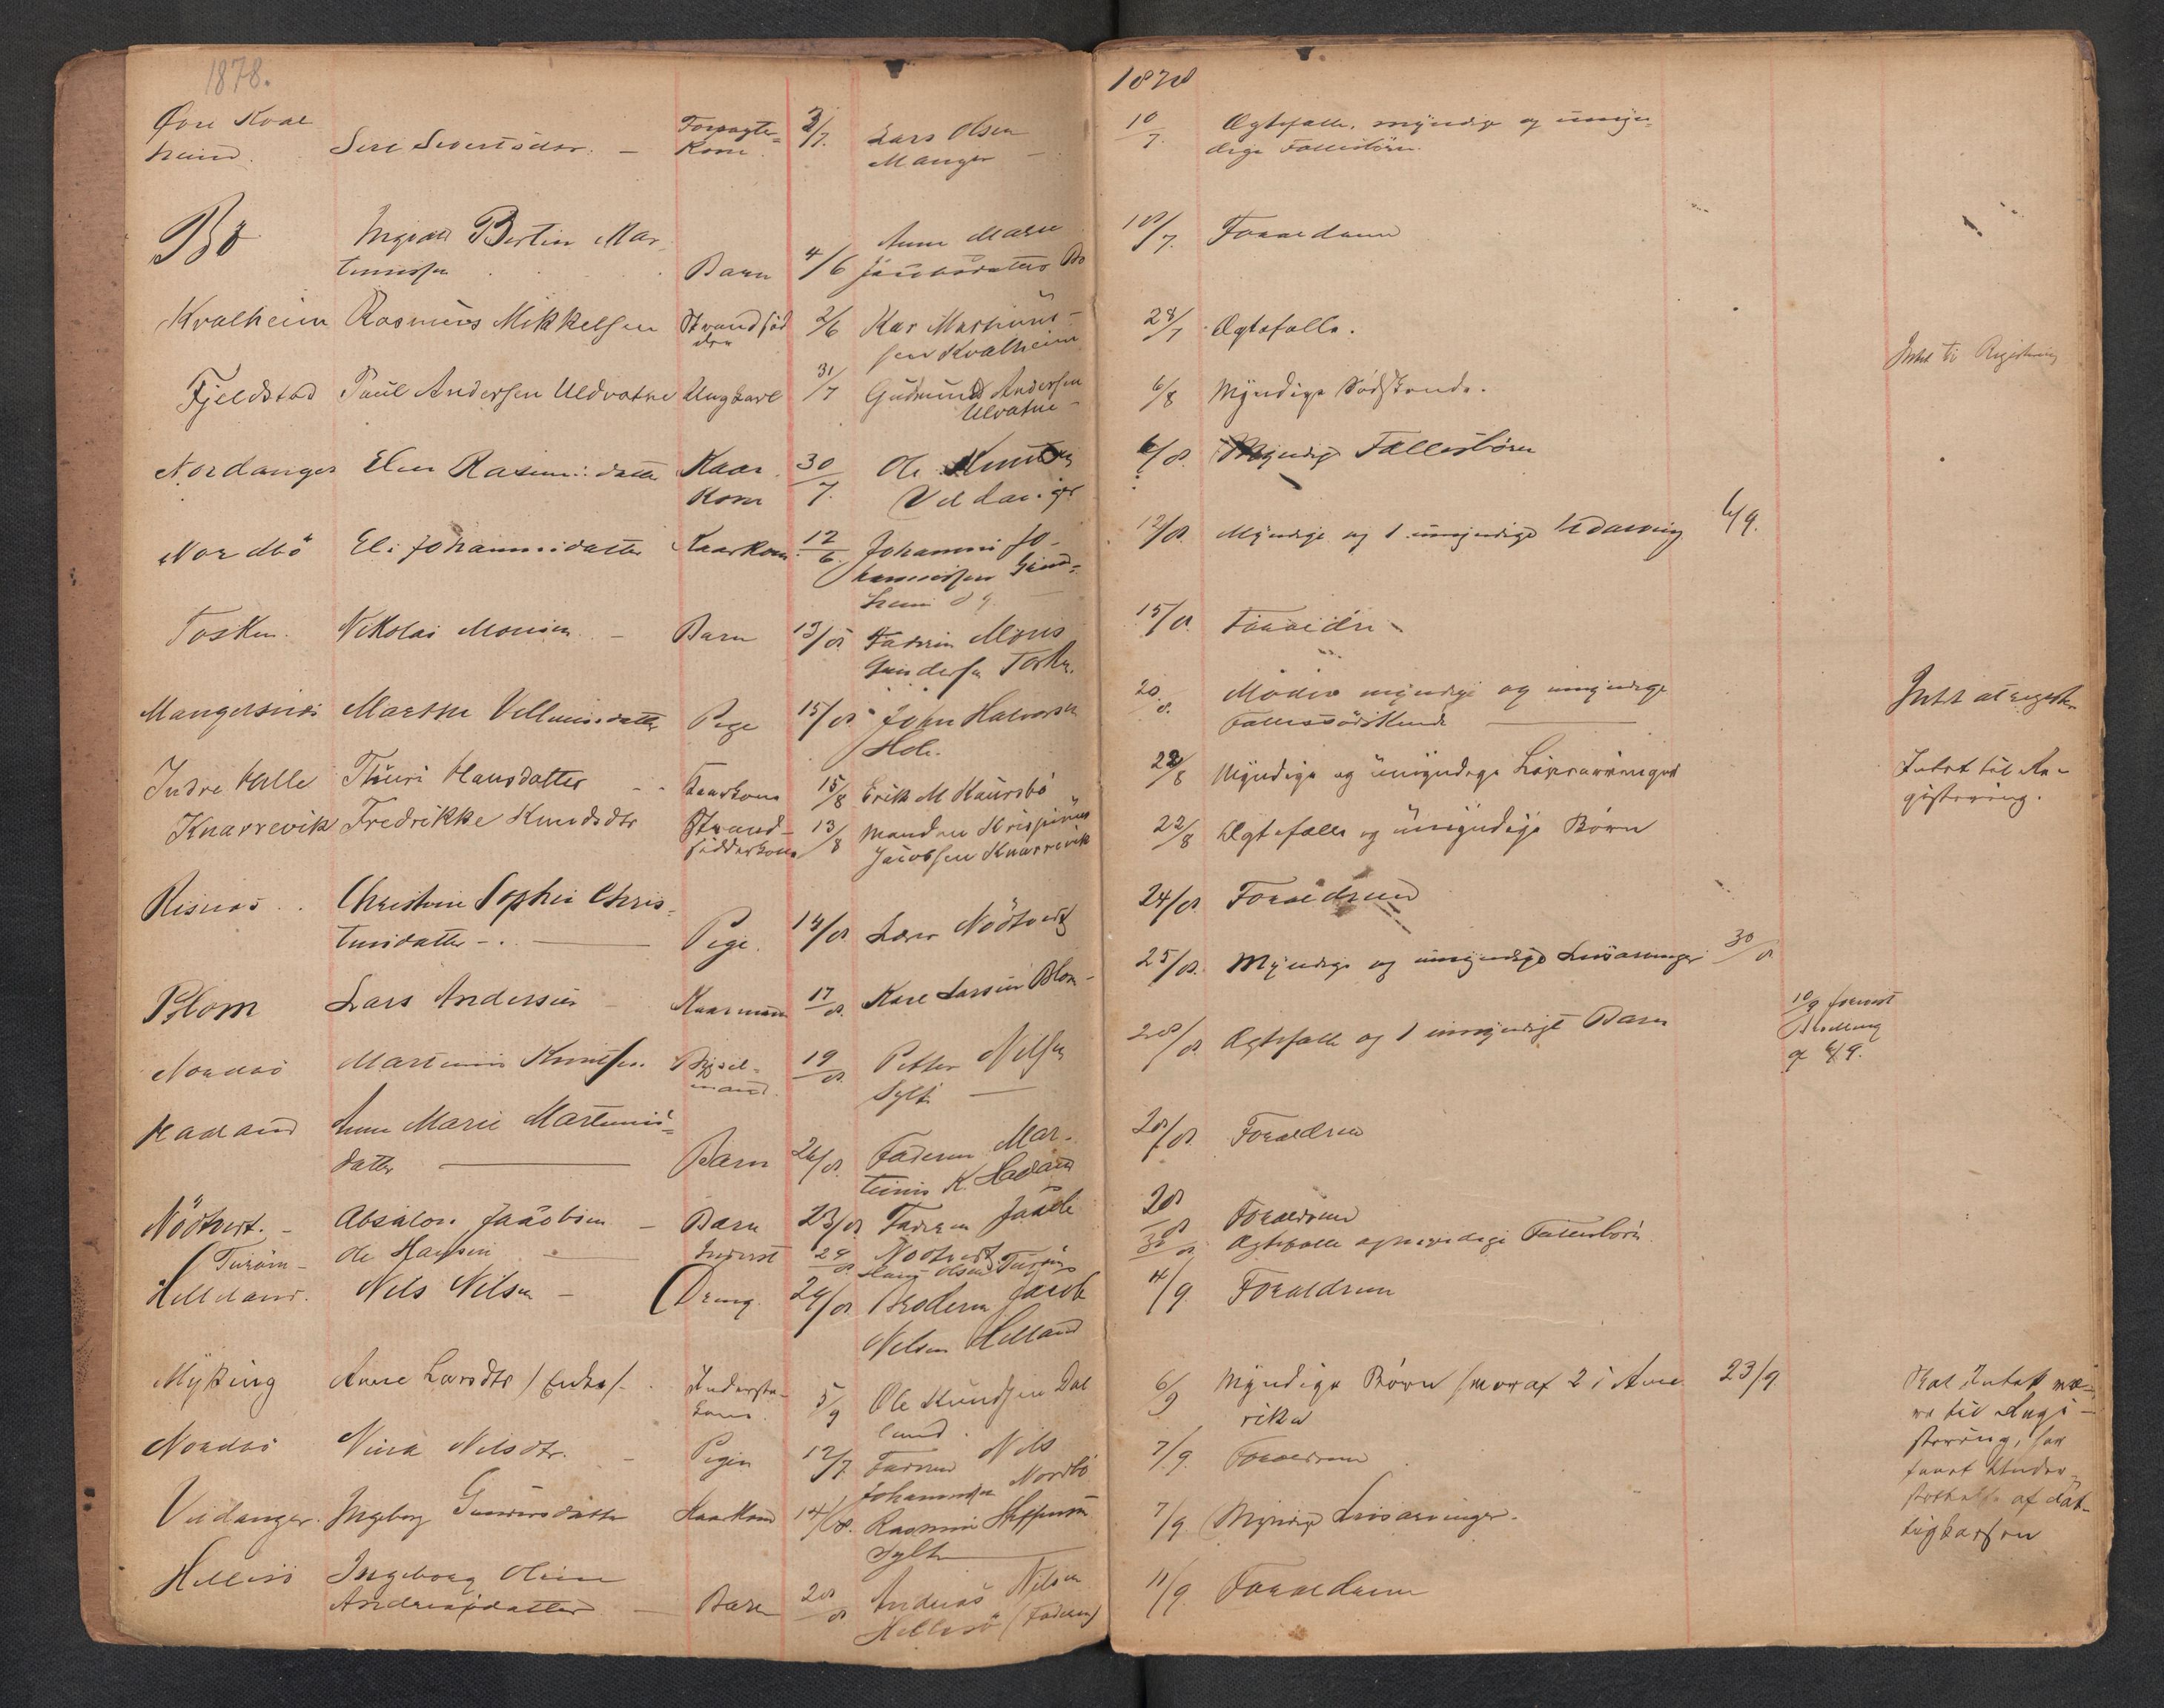 1878.
Øvre Kval
heim. Seri Sivertsdtr. — Forpagter-
Kone. 3/7. Lars Olsen
Manger —
Bø Ingvald Bertin Mar
tinussen Barn 4/6 Anne Marie
Jacobsdatter Bø
Kvalheim Rasmus Mikkelsen Strandsid
der 2/6 Kar Martinus-
sen Kvalheim
Fjeldstad Paul Andersen Uldvatne Ungkarl 31/7 Gudmund Andersen
Ulvatne -
Nordanger Elen Rasm: datter Kaar
Kone 30/7. Ole Knutsen
Veldanger
Nordbö Eli Johannisdatter Kaarkone 12/6. Johannis Jo-
hannissen
Tosken. Nikolai Monsen — Barn 13/8 Faderen Mons
Gundersen Tosken.
Mangersnes Marthe Villumsdatter Pige 15/8. John Halvorsen
Hole.
Indre Halle Thuri Hansdatter Kaarkone 15/8 Erik M Kaursbö
Knarrevik Fredrikke Knudsdtr Strand-
sidderkone 13/8 Manden Krispinus
Jacobsen Knarrevik
Risnes Christine Sophie Chris-
tensdatter — Pige. 14/8 Lærer Nödtvedt
Blom Lars Andersen Kaarmand 17/8. Karl Larsen Blom
Nordbö Martinus Knutsen Bygsel-
mand. 19/8. Petter Nilsen
Sylte —
Hadland Anne Marie Martinus-
datter — Barn 26/8. Faderen Mar-
tinus K. Hadland
Nödtvedt. — Absalon Jacobsen — Barn 23/8 Faderen Jacob
Nödtvedt
Turöin — Ole Hansen — Inderst 29/8 Hans Olsen Turöin
Helland. Nils Nilsen — Dreng. 24/8 Broderen Jacob
Nilsen Helland
Myking Anne Larsdtr /Enke/. Inderste-
kone. 5/9 Ole Knudsen Dal
land.
Nordbö Nina Nilsdtr. — Pigen 12/7 Faderen Nils
Johannessen Nordbö
Veidanger. Ingeborg Gunnersdatter Kaarkone 14/8. Rasmus Steffensen
Sylte —
Hellesö Ingeborg Oline
Andreasdatter — Barn 20/8 Andreas Nilsen
Hellesö (Faderen)
1878
10/7. Ægtefælle, myndige og umyn-
dige Fællesbörn.
10/7. Forældrene
28/7 Ægtefælle. Intet til Registrering
6/8 Myndige Sødskende.
6/8. Myndige Fællesbörn
12/8. Myndige og 1 umyndige Udarving 6/9.
15/8. Forældre
20/8. Moder myndige og umyndige
Fællessödskende — Intet at registre
22/8 Myndige og umyndige Livsarvinger Intet til Re-
gistrering.
22/8 Ægtefælle og umyndige Børn
24/8 Forældrene
25/8. Myndige og umyndige Livsarvinger 30/8
28/8 Ægtefælle og 1 umyndigt Barn 10/9
28/8. Forældrene
28/8 Forældrene
30/8 Ægtefælle og myndige Fællesbörn.
4/9. Forældrene
6/9 Myndige Børn /hvoraf 2 i Ame
rika 23/9 Skal Intet væ-
re til Regi-
strering, har
havt Under-
støttelse af Fat-
tigkassen
7/9. Forældrene
7/9. Myndige Livsarvinger.
11/9. Forældrene